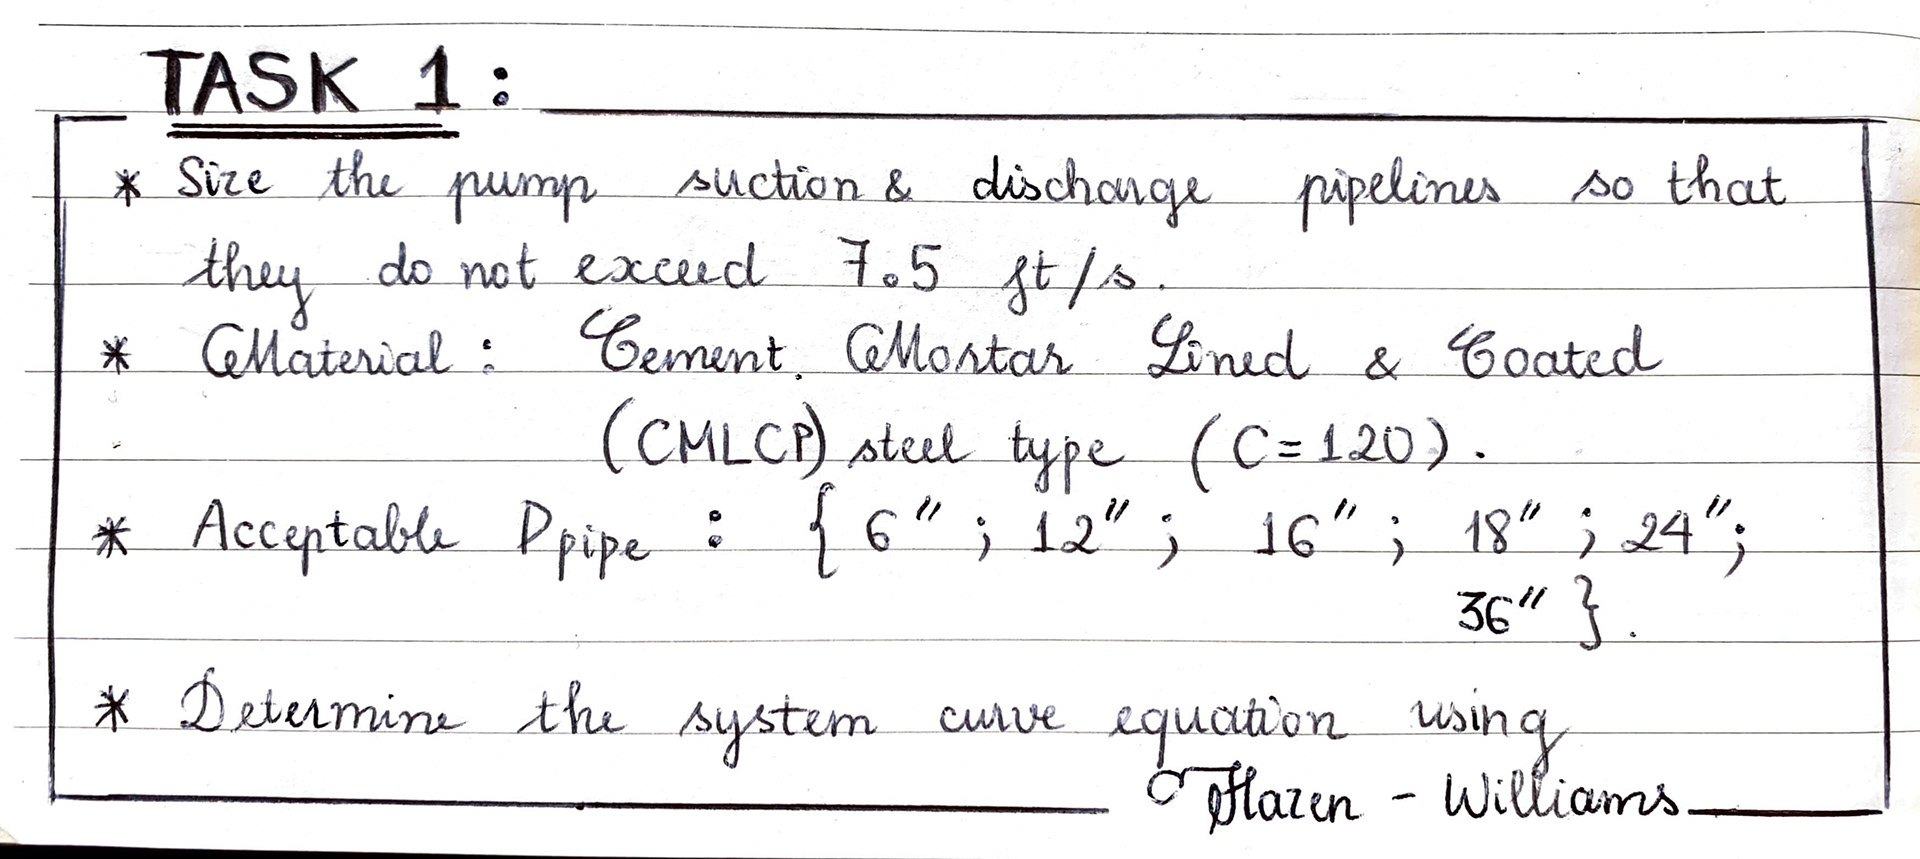 TASK 1:
* Size the pump suction & discharge pipelines so that
they do not exceed 7.5 ft/s.
* Material: Cement Mortar Lined & Coated
(CMLCP) steel type (C=120).
* Acceptable Dpipe : { 6"; 12"; 16"; 18"; 24";
36" }.
* Determine the system curve equation using
Hazen - Williams